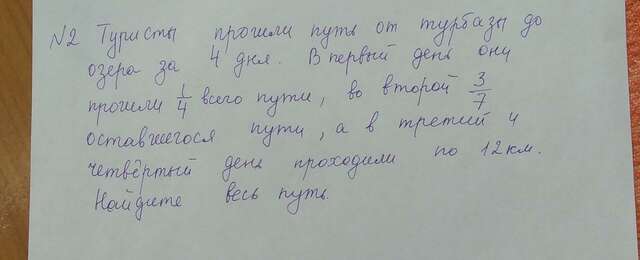 №2 Туристы прошли путь от турбазы до
озера за 4 дня. В первый день они
прошли 1/4 всего пути, во второй 3/7
оставшегося пути, а в третий и
четвёртый день проходили по 12 км.
Найдите весь путь.